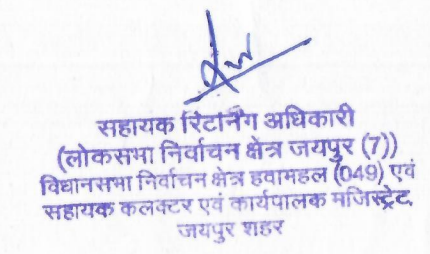 सहायक रिटर्निंग अधिकारी
(लोकसभा निर्वाचन क्षेत्र जयपुर (7))
विधानसभा निर्वाचन क्षेत्र हवामहल (049) एवं
सहायक कलक्टर एवं कार्यपालक मजिस्ट्रेट
जयपुर शहर